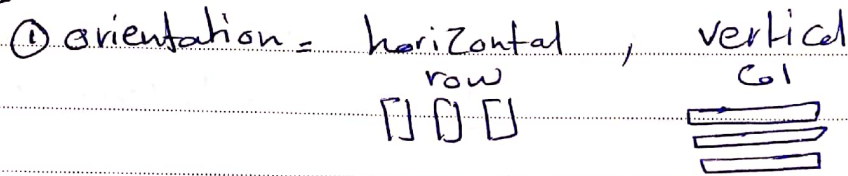 ① orientation = horizontal , vertical
row col